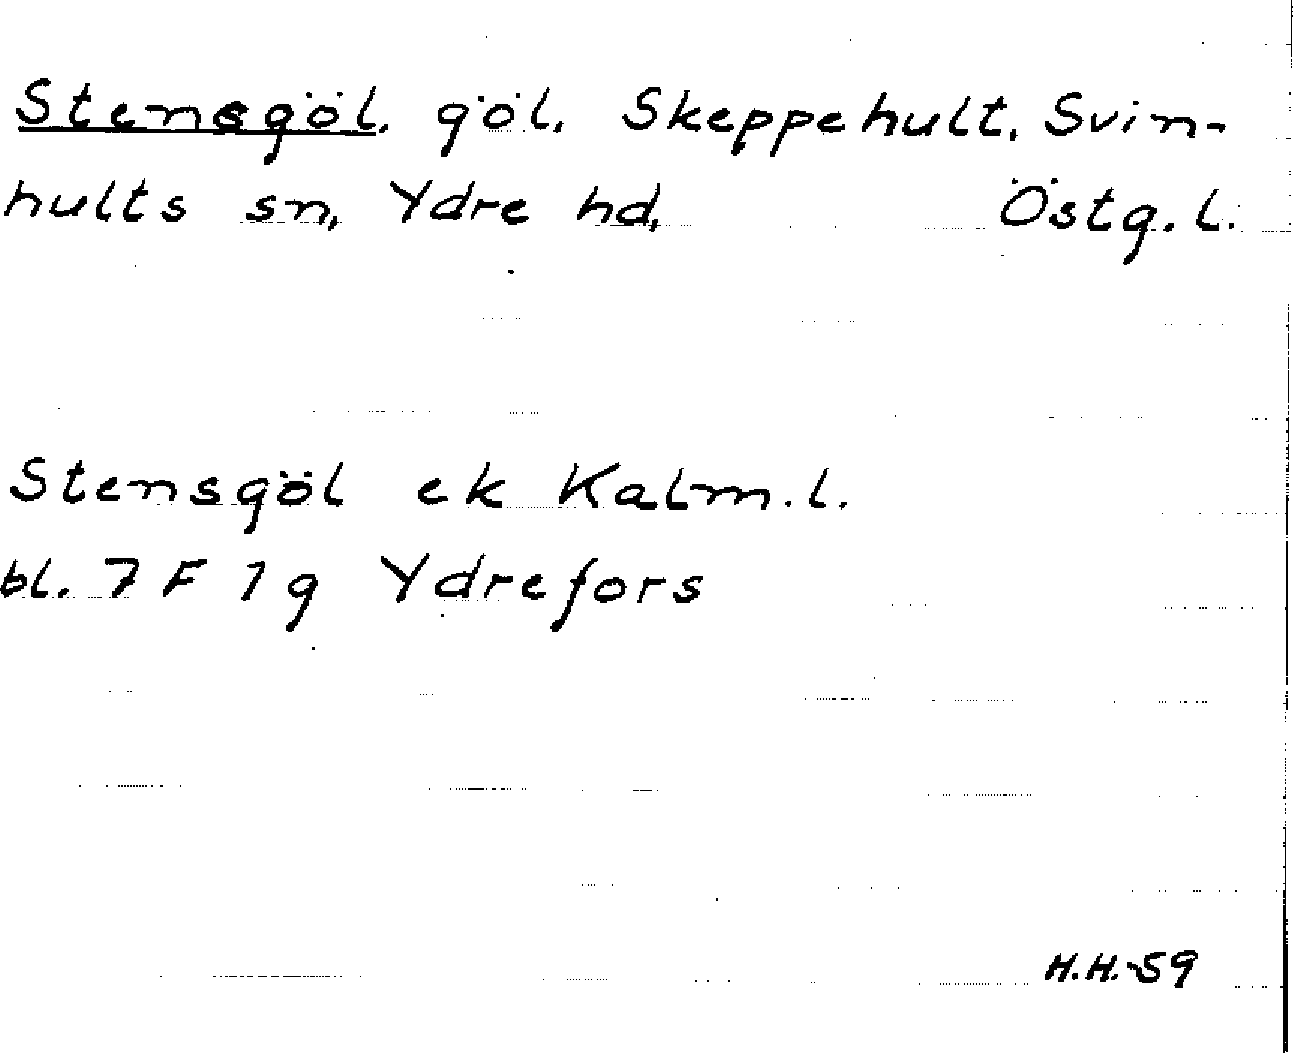 Stensgöl, göl, Skeppehult, Svin-
hults sn, Ydre hd, Östg. l.
Stensgöl ek Kalm. l.
bl. 7 F 1 g Ydrefors
H.H.-59